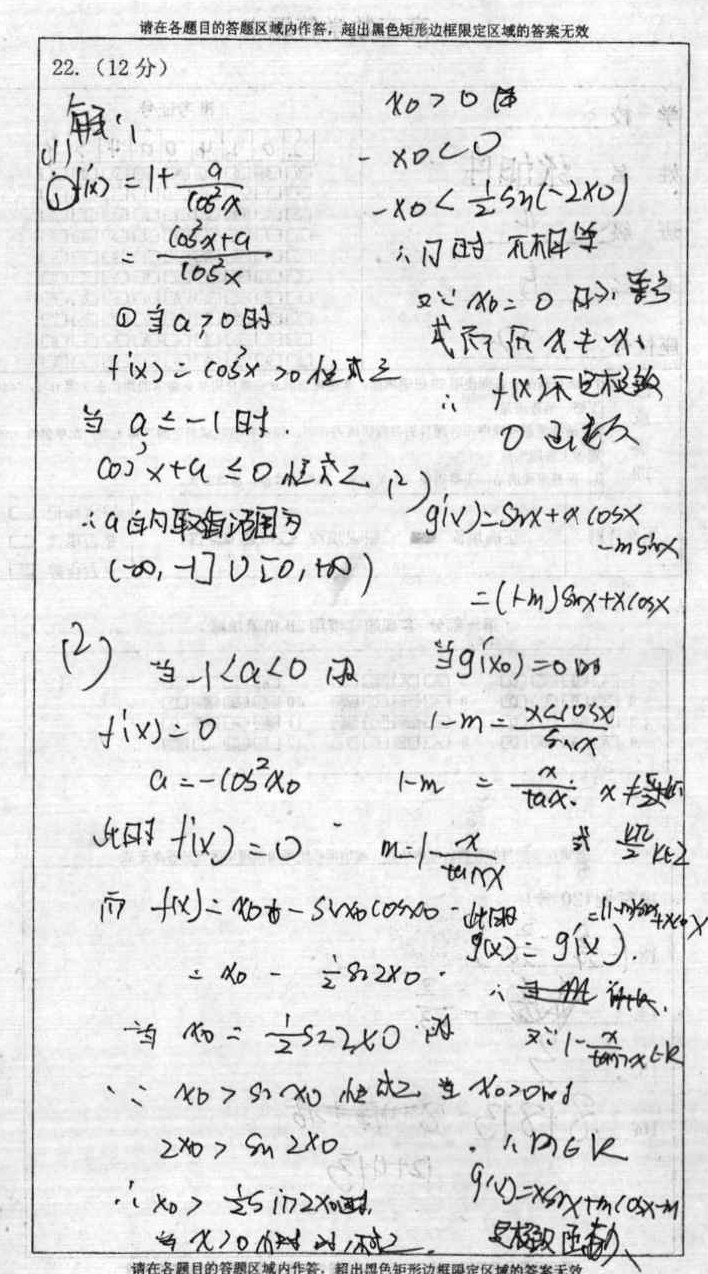 请在各题目的答题区域内作答，超出黑色矩形边框限定区域的答案无效
22.（12分）
解：
(1)
① f'(x) = 1 + a/cos²x
= (cos²x+a)/cos²x
① 当 a≥0 时
f'(x) = cos²x >0 恒成立
当 a ≤ -1 时.
cos²x+a ≤ 0 恒成立
∴a的取值范围为
(-∞, -1] ∪ [0, +∞)
(2) 当 -1<a<0 时
f'(x) = 0
a = -cos²x₀
此时 f'(x) = 0
而 f(x) = x₀ - sinx₀cosx₀
= x₀ - 1/2 sin2x₀.
当 x₀ = 1/2 sin2x₀ 时
∵ x₀ > sinx₀ 恒成立 当 x₀>0时
2x₀ > sin 2x₀
∴ x₀ > 1/2 sin2x₀
当 x>0
x₀ > 0 时
- x₀ < 0
-x₀ < 1/2 sin(-2x₀)
∴ 同时 不相等
又∵ x₀ = 0 时 等
式
∴ f(x)不是极致
0 函数
(2)
g'(x) = sinx + x cosx
- m sinx
= (1-m) sinx + x cosx
当 g'(x₀) = 0 时
1-m = xcosx/sinx
1-m = x/tanx. x ≠
m = 1 - x/tanx 或 kπ/2 k∈Z
此时 =(1-m)sinx+xcosx
g(x) = g'(x).
∴
又∵ 1 - x/tanx ∈R
∴ m∈R
g(x) = xsinx+mcosx-m
是极致函数
请在各题目的答题区域内作答，超出黑色矩形边框限定区域的答案无效